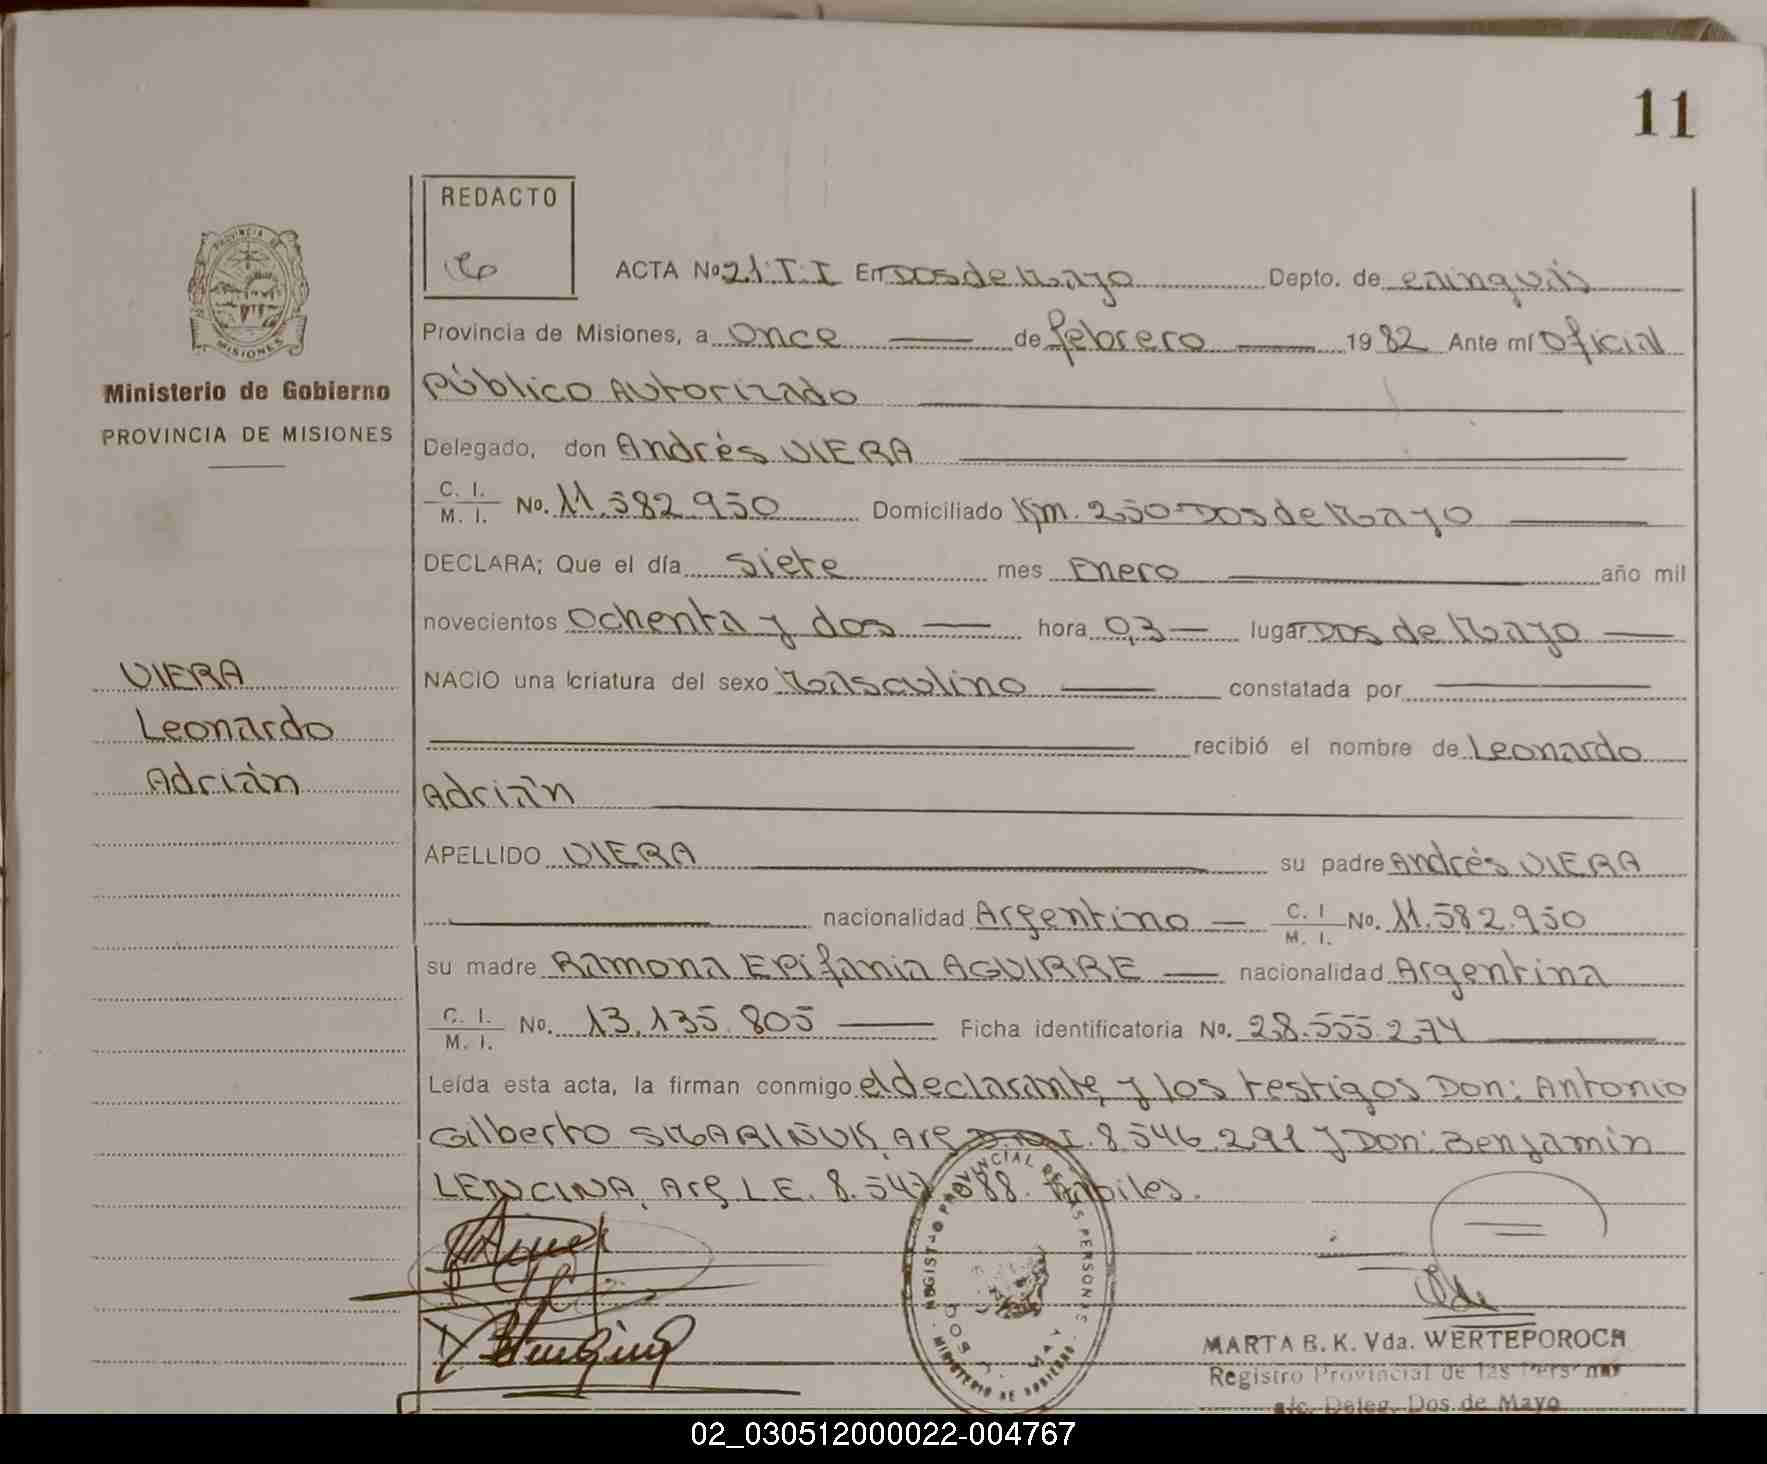 11
REDACTO
PROVINCIA DE
MISIONES
Ministerio de Gobierno
PROVINCIA DE MISIONES
VIERA
Leonardo
Adrián
ACTA Nº 21.T.I En Dos de Mayo Depto. de Cainguás
Provincia de Misiones, a Once de febrero 1982 Ante mí Oficial
Público Autorizado
Delegado, don Andrés VIERA
C. I. M. I. No. 11.582.950 Domiciliado Km. 250-Dos de Mayo
DECLARA; Que el día siete mes Enero año mil
novecientos Ochenta y dos hora 0,3 lugar Dos de Mayo
NACIO una criatura del sexo Masculino constatada por
recibió el nombre de Leonardo
Adrián
APELLIDO VIERA su padre Andrés VIERA
nacionalidad Argentino C. I M. I. No. 11.582.950
su madre Ramona EPifania AGUIRRE nacionalidad Argentina
C. I. M. I. No. 13.135.805 Ficha identificatoria No. 28.555.274
Leída esta acta, la firman conmigo el declarante, y los testigos Don: Antonio
Gilberto Arg D.N.I. 8.546.291 y Don: Benjamín
LENCINA, Arg L.E. 8.54 .088. Hábiles.
REGISTRO PROVINCIAL DE LAS PERSONAS
DOS MAY
MINISTERIO DE GOBIERNO
MARTA B. K. Vda. WERTEPOROCH
Registro Provincial de las Personas
a/c. Deleg. Dos de Mayo
02_030512000022-004767